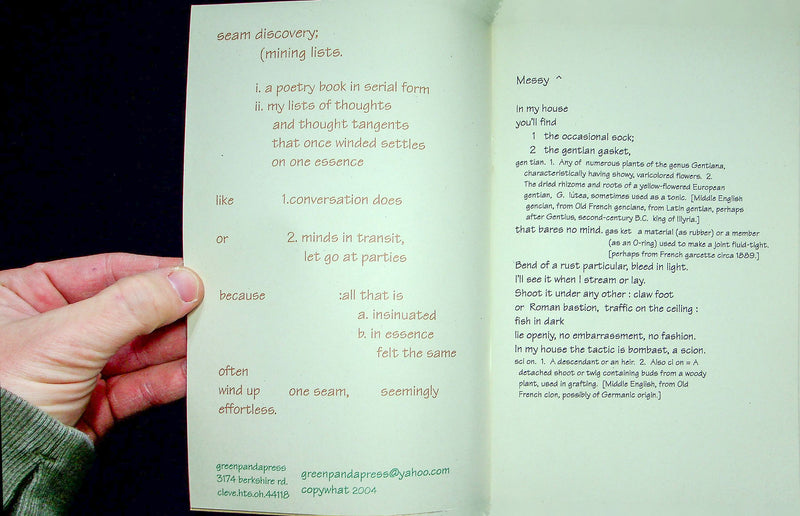 seam discovery;
(mining lists.
i. a poetry book in serial form
ii. my lists of thoughts
and thought tangents
that once winded settles
on one essence
like 1.conversation does
or 2. minds in transit,
let go at parties
because :all that is
a. insinuated
b. in essence
felt the same
often
wind up one seam, seemingly
effortless.
greenpandapress
3174 berkshire rd.
cleve.hts.oh.44118
greenpandapress@yahoo.com
copywhat 2004
Messy ^
in my house
you'll find
1 the occasional sock;
2 the gentian gasket,
gen tian. 1. Any of numerous plants of the genus Gentiana,
characteristically having showy, varicolored flowers. 2.
The dried rhizome and roots of a yellow-flowered European
gentian, G. lútea, sometimes used as a tonic. [Middle English
gencian, from Old French genciane, from Latin gentian, perhaps
after Gentius, second-century B.C. king of Illyria.]
that bares no mind. gas ket a material (as rubber) or a member
(as an O-ring) used to make a joint fluid-tight.
[perhaps from French garcette circa 1889.]
Bend of a rust particular, bleed in light.
I'll see it when I stream or lay.
Shoot it under any other : claw foot
or Roman bastion, traffic on the ceiling :
fish in dark
lie openly, no embarrassment, no fashion.
In my house the tactic is bombast, a scion.
sci on. 1. A descendant or an heir. 2. Also ci on = A
detached shoot or twig containing buds from a woody
plant, used in grafting. [Middle English, from Old
French cion, possibly of Germanic origin.]